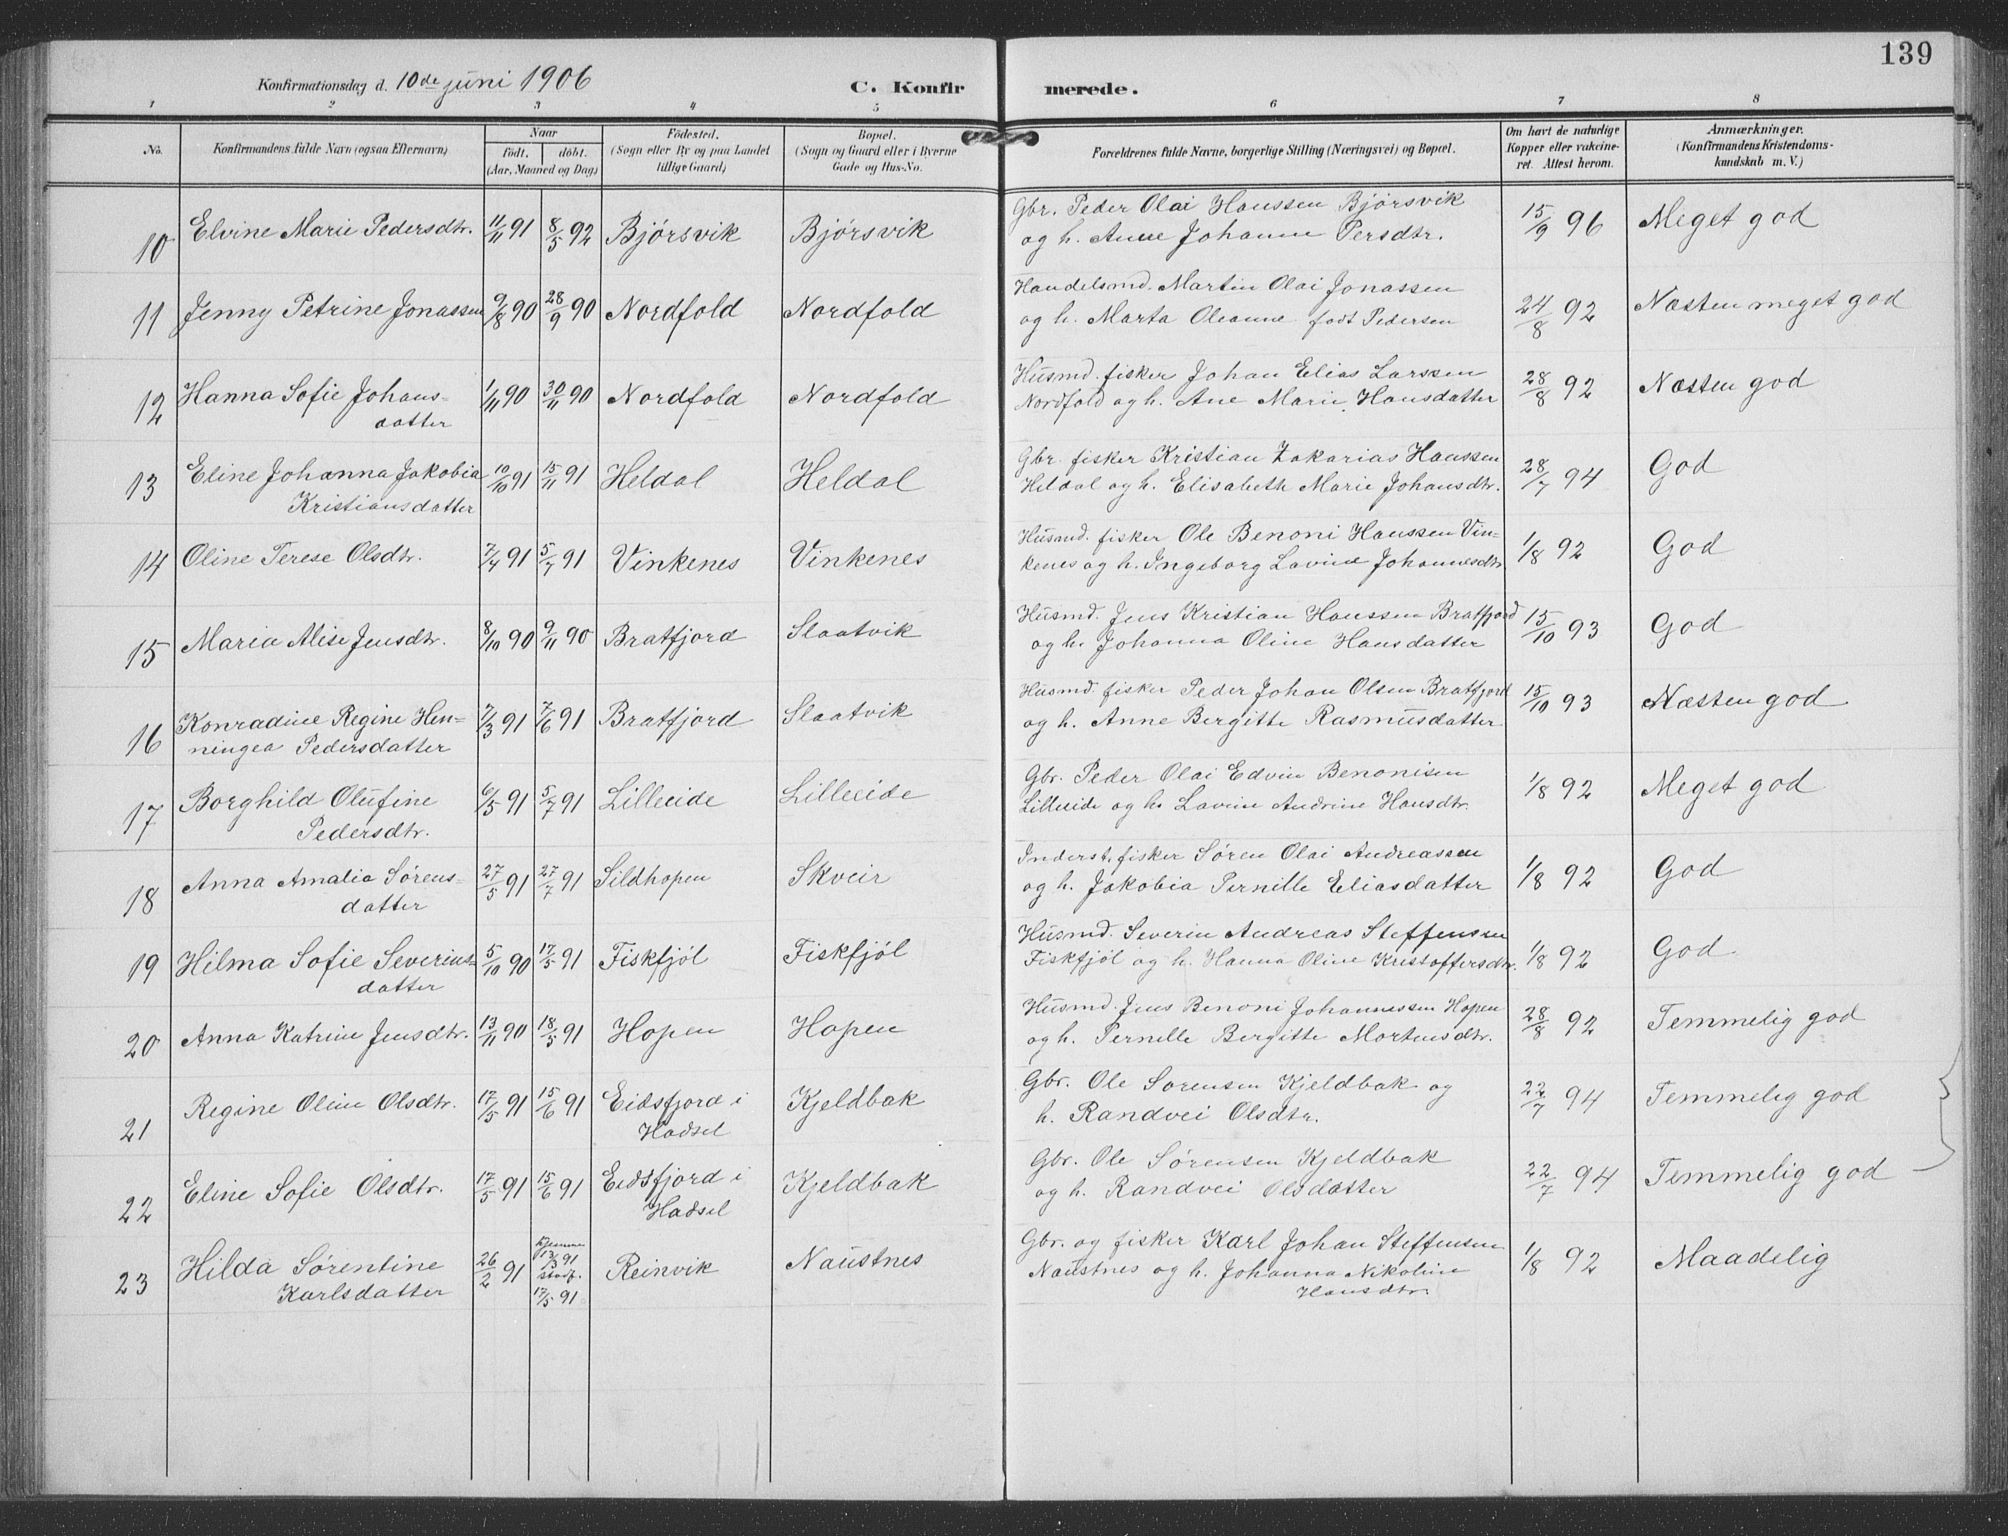 139
Konfirmationsdag d. 10de juni 1906 C. Konfirmerede.
1 2 3 4 5 6 7 8
No. Konfirmandens fulde Navn (ogsaa Efternavn) Naar født. døbt. (Aar, Maaned og Dag) Fødested. (Sogn eller By og paa Landet tillige Gaard) Bopæl. (Sogn og Gaard eller i Byerne Gade og Hus-No. Forældrenes fulde Navne, borgerlige Stilling (Næringsvei) og Bopæl. Om havt de naturlige Kopper eller vakcineret. Attest herom. Anmærkninger. (Konfirmandens Kristendomskundskab m. V.)
10 Elvine Marie Pedersdtr. 11/11 91 8/5 92 Bjørsvik Bjørsvik Gbr. Peder Olai Hanssen Bjørsvik og h. Anne Johanne Persdtr. 15/9 96 Meget god
11 Jenny Petrine Jonassen 9/8 90 28/9 90 Nordfold Nordfold Handelsmd. Martin Olai Jonassen og h. Marta Oleanne født Pedersen 24/8 92 Næsten meget god
12 Hanna Sofie Johansdatter 1/11 90 30/11 90 Nordfold Nordfold Husmd. fisker Johan Elias Larssen Nordfold og h. Ane Marie Hansdatter 28/8 92 Næsten god
13 Eline Johanna Jakobia Kristiansdatter 10/10 91 15/11 91 Heldal Heldal Gbr. fisker Kristian Zakarias Hanssen Heldal og h. Elisabeth Marie Johansdtr. 28/7 94 God
14 Oline Terese Olsdtr. 7/4 91 5/7 91 Vinkenes Vinkenes Husmd. fisker Ole Benoni Hanssen Vinkenes og h. Ingeborg Lovine Johannesdtr 1/8 92 God
15 Maria Alise Jensdtr. 8/10 90 9/11 90 Bratfjord Slaatvik Husmd. Jens Kristian Hanssen Bratfjord og h. Johanna Oline Hansdatter 15/10 93 God
16 Konradine Regine Henningea Pedersdatter 7/3 91 7/6 91 Bratfjord Slaatvik Husmd. fisker Peder Johan Olsen Bratfjord og h. Anne Bergitte Rasmusdatter 15/10 93 Næsten god
17 Borghild Olufine Pedersdtr. 6/5 91 5/7 91 Lilleeide Lilleeide Gbr. Peder Olai Edvin Benonisen Lilleeide og h. Lavine Andrine Hansdtr. 1/8 92 Meget god
18 Anna Amalia Sørensdatter 27/5 91 27/7 91 Sildhopen Skveir Inderst, fisker Søren Olai Andreassen og h. Jakobia Pernille Eliasdatter 1/8 92 God
19 Hilma Sofie Severinsdatter 5/10 90 17/5 91 Fiskfjøl Fiskfjøl Husmd. Severin Andreas Steffensen Fiskfjøl og h. Hanna Oline Kristoffersdtr. 1/8 92 God
20 Anna Katrine Jensdtr. 13/11 90 18/5 91 Hopen Hopen Husmd. Jens Benoni Johannessen Hopen og h. Pernelle Bergitte Mortensdtr. 28/8 92 Temmelig god
21 Regine Oline Olsdtr. 17/5 91 15/6 91 Eidsfjord i Hadsel Kjeldbak Gbr. Ole Sørensen Kjeldbak og h. Randvei Olsdtr. 22/7 94 Temmelig god
22 Eline Sofie Olsdtr. 17/5 91 15/6 91 Eidsfjord i Hadsel Kjeldbak Gbr. Ole Sørensen Kjeldbak og h. Randvei Olsdatter 22/7 94 Temmelig god
23 Hilda Sørentine Karlsdatter 26/2 91 hjemme 13/3 91 stadf. 17/5 91 Reinvik Naustnes Gbr. og fisker Karl Johan Steffensen Naustnes og h. Johanna Nikoline Hansdtr. 1/8 92 Maadelig